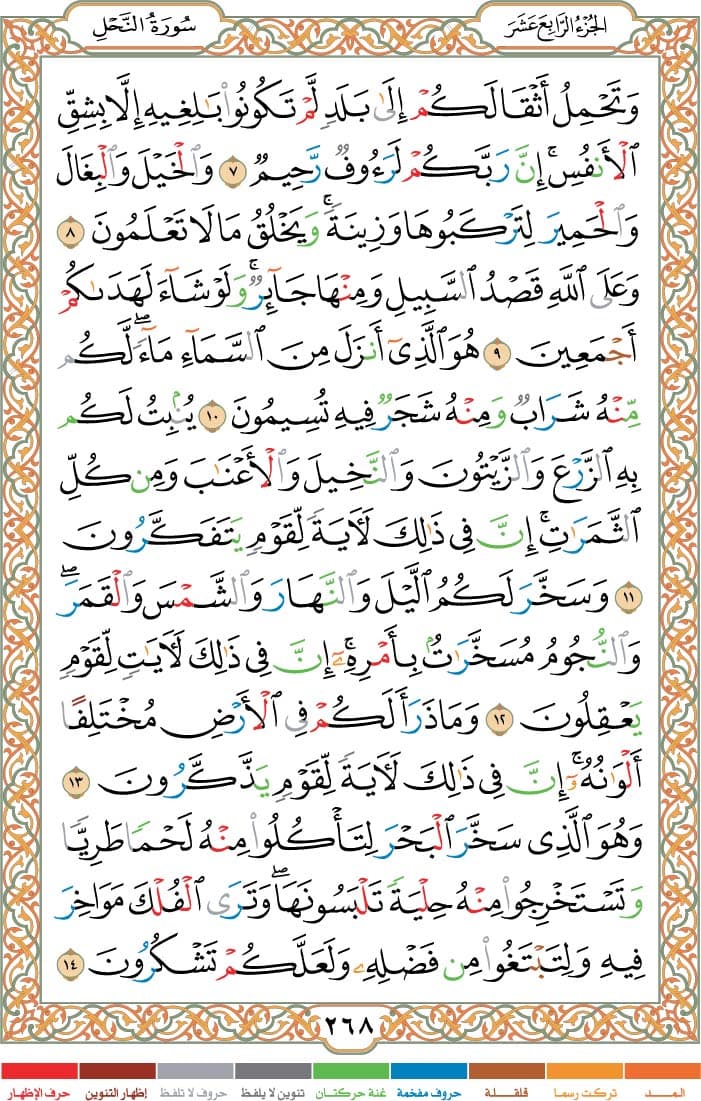 الجُزْءُ الرَّابِعَ عَشَرَ
سُورَةُ النَّحْلِ
وَتَحْمِلُ أَثْقَالَكُمْ إِلَىٰ بَلَدٍ لَّمْ تَكُونُوا۟ بَـٰلِغِيهِ إِلَّا بِشِقِّ
ٱلْأَنفُسِ ۚ إِنَّ رَبَّكُمْ لَرَءُوفٌ رَّحِيمٌ ٧ وَٱلْخَيْلَ وَٱلْبِغَالَ
وَٱلْحَمِيرَ لِتَرْكَبُوهَا وَزِينَةً ۚ وَيَخْلُقُ مَا لَا تَعْلَمُونَ ٨
وَعَلَى ٱللَّهِ قَصْدُ ٱلسَّبِيلِ وَمِنْهَا جَآئِرٌ ۚ وَلَوْ شَآءَ لَهَدَىٰكُمْ
أَجْمَعِينَ ٩ هُوَ ٱلَّذِىٓ أَنزَلَ مِنَ ٱلسَّمَآءِ مَآءً ۖ لَّكُم
مِّنْهُ شَرَابٌ وَمِنْهُ شَجَرٌ فِيهِ تُسِيمُونَ ١٠ يُنۢبِتُ لَكُم
بِهِ ٱلزَّرْعَ وَٱلزَّيْتُونَ وَٱلنَّخِيلَ وَٱلْأَعْنَـٰبَ وَمِن كُلِّ
ٱلثَّمَرَٰتِ ۗ إِنَّ فِى ذَٰلِكَ لَـَٔايَةً لِّقَوْمٍ يَتَفَكَّرُونَ
١١ وَسَخَّرَ لَكُمُ ٱلَّيْلَ وَٱلنَّهَارَ وَٱلشَّمْسَ وَٱلْقَمَرَ ۖ
وَٱلنُّجُومُ مُسَخَّرَٰتٌۢ بِأَمْرِهِۦٓ ۗ إِنَّ فِى ذَٰلِكَ لَـَٔايَـٰتٍ لِّقَوْمٍ
يَعْقِلُونَ ١٢ وَمَا ذَرَأَ لَكُمْ فِى ٱلْأَرْضِ مُخْتَلِفًا
أَلْوَٰنُهُۥٓ ۗ إِنَّ فِى ذَٰلِكَ لَـَٔايَةً لِّقَوْمٍ يَذَّكَّرُونَ ١٣
وَهُوَ ٱلَّذِى سَخَّرَ ٱلْبَحْرَ لِتَأْكُلُوا۟ مِنْهُ لَحْمًا طَرِيًّا
وَتَسْتَخْرِجُوا۟ مِنْهُ حِلْيَةً تَلْبَسُونَهَا ۖ وَتَرَى ٱلْفُلْكَ مَوَاخِرَ
فِيهِ وَلِتَبْتَغُوا۟ مِن فَضْلِهِۦ وَلَعَلَّكُمْ تَشْكُرُونَ ١٤
٢٦٨
المـــد تركت رسما قلقلة حروف مفخمة غنة حركتان تنوين لا يلفظ حروف لا تلفظ إظهار التنوين حرف الإظهار